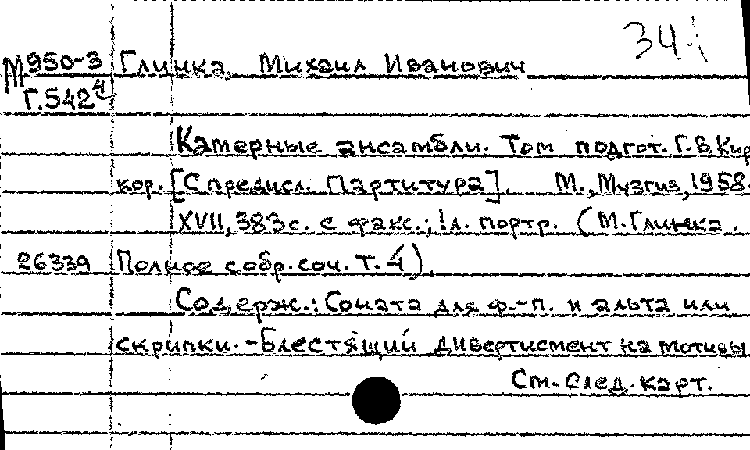 34
М950-3 Глинка, Михаил Иванович
Г.542 4
Камерные ансамбли. Том подгот. Г.В. Кир
кор. [С предисл. Партитура]. М., Музгиз, 1958.
XVII, 383с. с факс.; 1л. портр. (М. Глинка.
26339 Полное собр. соч. Т. 4).
Содерж.: Соната для ф.-п. и альта или
скрипки. - Блестящий дивертисмент на мотивы
См. след. карт.